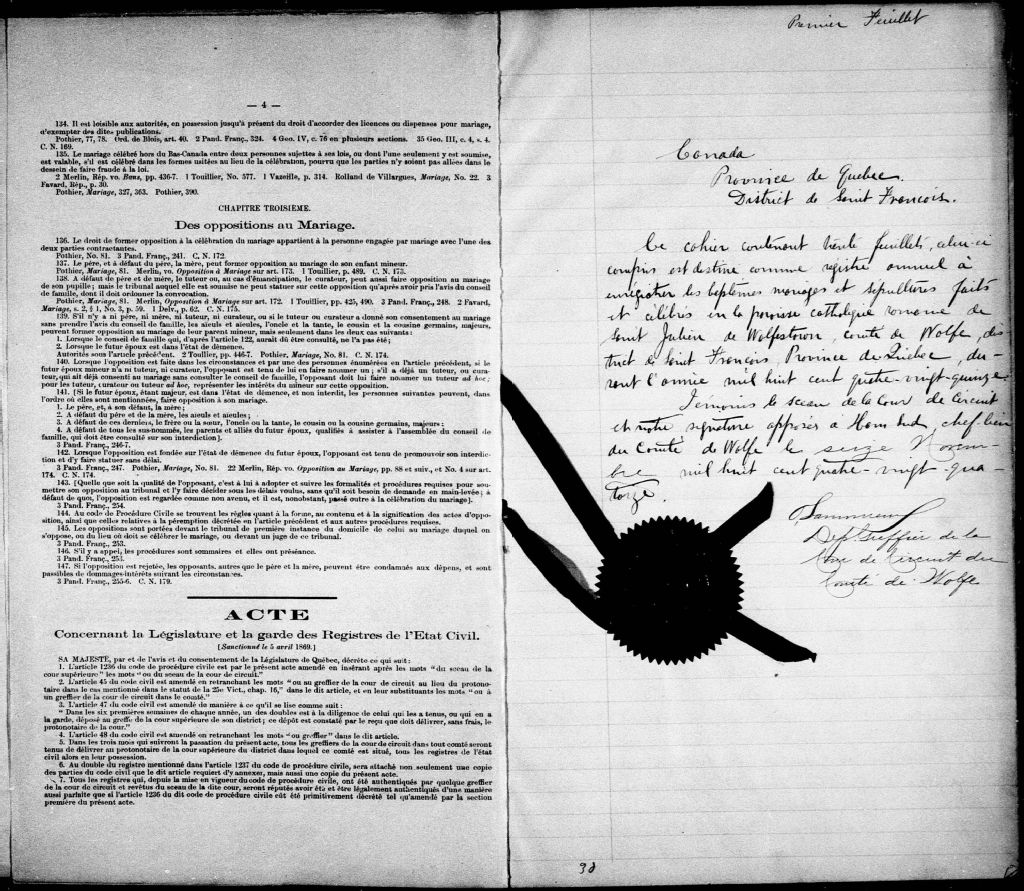 — 4 —
134. Il est loisible aux autorités, en possession jusqu'à présent du droit d'accorder des licences ou dispenses pour mariage,
d'exempter des dites publications.
Pothier, 77, 78. Ord. de Blois, art. 40. 2 Pand. Franç., 324. 4 Geo. IV, c. 76 en plusieurs sections. 35 Geo. III, c. 4, s. 4.
C. N. 169.
135. Le mariage célébré hors du Bas-Canada entre deux personnes sujettes à ses lois, ou dont l'une seulement y est soumise,
est valable, s'il est célébré dans les formes usitées au lieu de la célébration, pourvu que les parties n'y soient pas allées dans le
dessein de faire fraude à la loi.
2 Merlin, Rép. vo. Bans, pp. 436-7. 1 Touillier, No. 577. 1 Vazeille, p. 314. Rolland de Villargues, Mariage, No. 22. 3
Favard, Rép., p. 30.
Pothier, Mariage, 327, 363. Pothier, 390.
CHAPITRE TROISIÈME.
Des oppositions au Mariage.
136. Le droit de former opposition à la célébration du mariage appartient à la personne engagée par mariage avec l'une des
deux parties contractantes.
Pothier, No. 81. 3 Pand. Franç., 241. C. N. 172.
137. Le père, et à défaut du père, la mère, peut former opposition au mariage de son enfant mineur.
Pothier, Mariage, 81. Merlin, vo. Opposition à Mariage sur art. 173. 1 Touillier, p. 489. C. N. 173.
138. A défaut de père et de mère, le tuteur ou, au cas d'émancipation, le curateur, peut aussi faire opposition au mariage
de son pupille; mais le tribunal auquel elle est soumise ne peut statuer sur cette opposition qu'après avoir pris l'avis du conseil
de famille, dont il doit ordonner la convocation.
Pothier, Mariage, 81. Merlin, Opposition à Mariage sur art. 172. 1 Touillier, pp. 425, 490. 3 Pand. Franç., 248. 2 Favard,
Mariage, s. 2, § 1, No. 3, p. 59. 1 Delv., p. 62. C. N. 175.
139. S'il n'y a ni père, ni mère, ni tuteur, ni curateur, ou si le tuteur ou curateur a donné son consentement au mariage
sans prendre l'avis du conseil de famille, les aieuls et aieules, l'oncle et la tante, le cousin et la cousine germains, majeurs,
peuvent former opposition au mariage de leur parent mineur, mais seulement dans les deux cas suivants:
1. Lorsque le conseil de famille qui, d'après l'article 122, aurait dû être consulté, ne l'a pas été;
2. Lorsque le futur époux est dans l'état de démence.
Autorités sous l'article précédent. 2 Toullier, pp. 446-7. Pothier, Mariage, No. 81. C. N. 174.
140. Lorsque l'opposition est faite dans les circonstances et par une des personnes énumérées en l'article précédent, si le
futur époux mineur n'a ni tuteur, ni curateur, l'opposant est tenu de lui en faire nommer un; s'il a déjà un tuteur, ou cura-
teur, qui ait déjà consenti au mariage sans consulter le conseil de famille, l'opposant doit lui faire nommer un tuteur ad hoc;
pour les tuteur, curateur ou tuteur ad hoc, représenter les intérêts du mineur sur cette opposition.
141. [Si le futur époux, étant majeur, est dans l'état de démence, et non interdit, les personnes suivantes peuvent, dans
l'ordre où elles sont mentionnées, faire opposition à son mariage.
1. Le père, et, à son défaut, la mère;
2. A défaut du père et de la mère, les aieuls et aieules;
3. A défaut de ces derniers, le frère ou la sœur, l'oncle ou la tante, le cousin ou la cousine germains, majeurs;
4. A défaut de tous les sus-nommés, les parents et alliés du futur époux, qualifiés à assister à l'assemblée du conseil de
famille, qui doit être consulté sur son interdiction].
3 Pand. Franç., 246-7.
142. Lorsque l'opposition est fondée sur l'état de démence du futur époux, l'opposant est tenu de promouvoir son interdic-
tion et d'y faire statuer sans délai.
3 Pand. Franç., 247. Pothier, Mariage, No. 81. 22 Merlin, Rép. vo. Opposition au Mariage, pp. 88 et suiv., et No. 4 sur art.
174. C. N. 174.
143. [Quelle que soit la qualité de l'opposant, c'est à lui à adopter et suivre les formalités et procédures requises pour sou-
mettre son opposition au tribunal et l'y faire décider sous les délais voulus, sans qu'il soit besoin de demande en main-levée; à
défaut de quoi, l'opposition est regardée comme non avenue, et il est, nonobstant, passé outre à la célébration du mariage].
3 Pand. Franç., 254.
144. Au code de Procédure Civile se trouvent les règles quant à la forme, au contenu et à la signification des actes d'oppo-
sition, ainsi que celles relatives à la péremption décrétée en l'article précédent et aux autres procédures requises.
145. Les oppositions sont portées devant le tribunal de première instance du domicile de celui au mariage duquel on
s'oppose, ou du lieu où doit se célébrer le mariage, ou devant un juge de ce tribunal.
3 Pand. Franç., 253.
146. S'il y a appel, les procédures sont sommaires et elles ont préséance.
3 Pand. Franç., 253.
147. Si l'opposition est rejetée, les opposants, autres que le père et la mère, peuvent être condamnés aux dépens, et sont
passibles de dommages-intérêts suivant les circonstances.
3 Pand. Franç., 255-6. C. N. 179.
ACTE
Concernant la Législature et la garde des Registres de l'Etat Civil.
[Sanctionné le 5 avril 1869.]
SA MAJESTÉ, par et de l'avis et du consentement de la Législature de Québec, décrète ce qui suit:
1. L'article 1236 du code de procédure civile est par le présent acte amendé en insérant après les mots "du sceau de la
cour supérieure" les mots "ou du sceau de la cour de circuit."
2. L'article 45 du code civil est amendé en retranchant les mots "ou au greffier de la cour de circuit au lieu du protono-
taire dans le cas mentionné dans le statut de la 25e Vict., chap. 16," dans le dit article, et en leur substituants les mots "ou à
un greffier de la cour de circuit dans le comté."
3. L'article 47 du code civil est amendé de manière à ce qu'il se lise comme suit:
"Dans les six premières semaines de chaque année, un des doubles est à la diligence de celui qui les a tenus, ou qui en a
la garde, déposé au greffe de la cour supérieure de son district; ce dépôt est constaté par le reçu que doit délivrer, sans frais, le
protonotaire de la cour."
4. L'article 48 du code civil est amendé en retranchant les mots "ou greffier" dans le dit article.
5. Dans les trois mois qui suivront la passation du présent acte, tous les greffiers de la cour de circuit dans tout comté seront
tenus de délivrer au protonotaire de la cour supérieure du district dans lequel ce comté est situé, tous les registres de l'état
civil alors en leur possession.
6. Au double du registre mentionné dans l'article 1237 du code de procédure civile, sera attaché non seulement une copie
des parties du code civil que le dit article requiert d'y annexer, mais aussi une copie du présent acte.
7. Tous les registres qui, depuis la mise en vigueur du code de procédure civile, ont été authentiqués par quelque greffier
de la cour de circuit et revêtus du sceau de la dite cour, seront réputés avoir été et être légalement authentiqués d'une manière
aussi parfaite que si l'article 1236 du dit code de procédure civile eût été primitivement décrété tel qu'amendé par la section
première du présent acte.
Premier Feuillet
Canada
Province de Quebec.
District de Saint Francois.
Ce cahier contenant trente feuillets, celui-ci
compris est destiné comme registre annuel à
enrégistrer les baptêmes mariages et sepultures faits
et célébrés en la paroisse catholique romaine de
Saint Julien de Wolfestown, comté de Wolfe, dis
trict de Saint Francois Province de Québec, du-
rant l'année mil huit cent quatre-vingt-quinze
Témoins le sceau de la Cour de Circuit
et notre signature apposés à Ham Sud, chef-lieu
du Comté de Wolfe le seize Novem-
bre mil huit cent quatre-vingt-qua-
torze.
Dep. Greffier de la
Cour de Circuit du
Comté de Wolfe
38